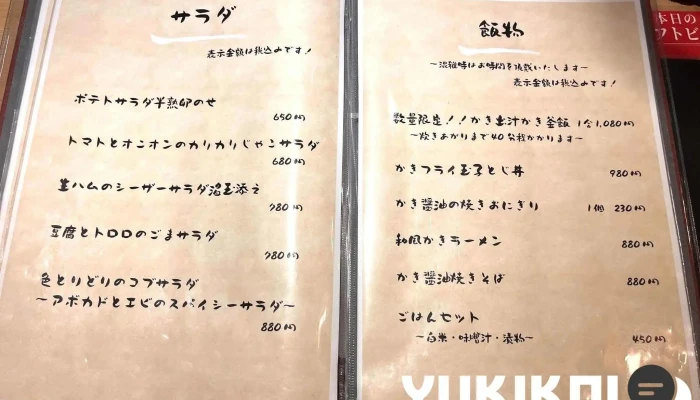 サラダ
表示金額は税込みです！
ポテトサラダ半熟卵のせ
650円
トマトとオニオンのカリカリじゃこサラダ
680円
生ハムのシーザーサラダ温玉添え
780円
豆腐とトロロのごまサラダ
780円
色とりどりのコブサラダ
〜アボカドとエビのスパイシーサラダ〜
880円
飯物
〜混雑時はお時間を頂戴いたします〜
表示金額は税込みです！
数量限定！！かき出汁かき釜飯 1合1,080円
〜炊きあがりまで40分程かかります〜
かきフライ玉子とじ丼 980円
かき醤油の焼きおにぎり 1個 230円
和風かきラーメン 880円
かき醤油焼きそば 880円
ごはんセット
〜白米・味噌汁・漬物〜 450円
本日の
フトビ